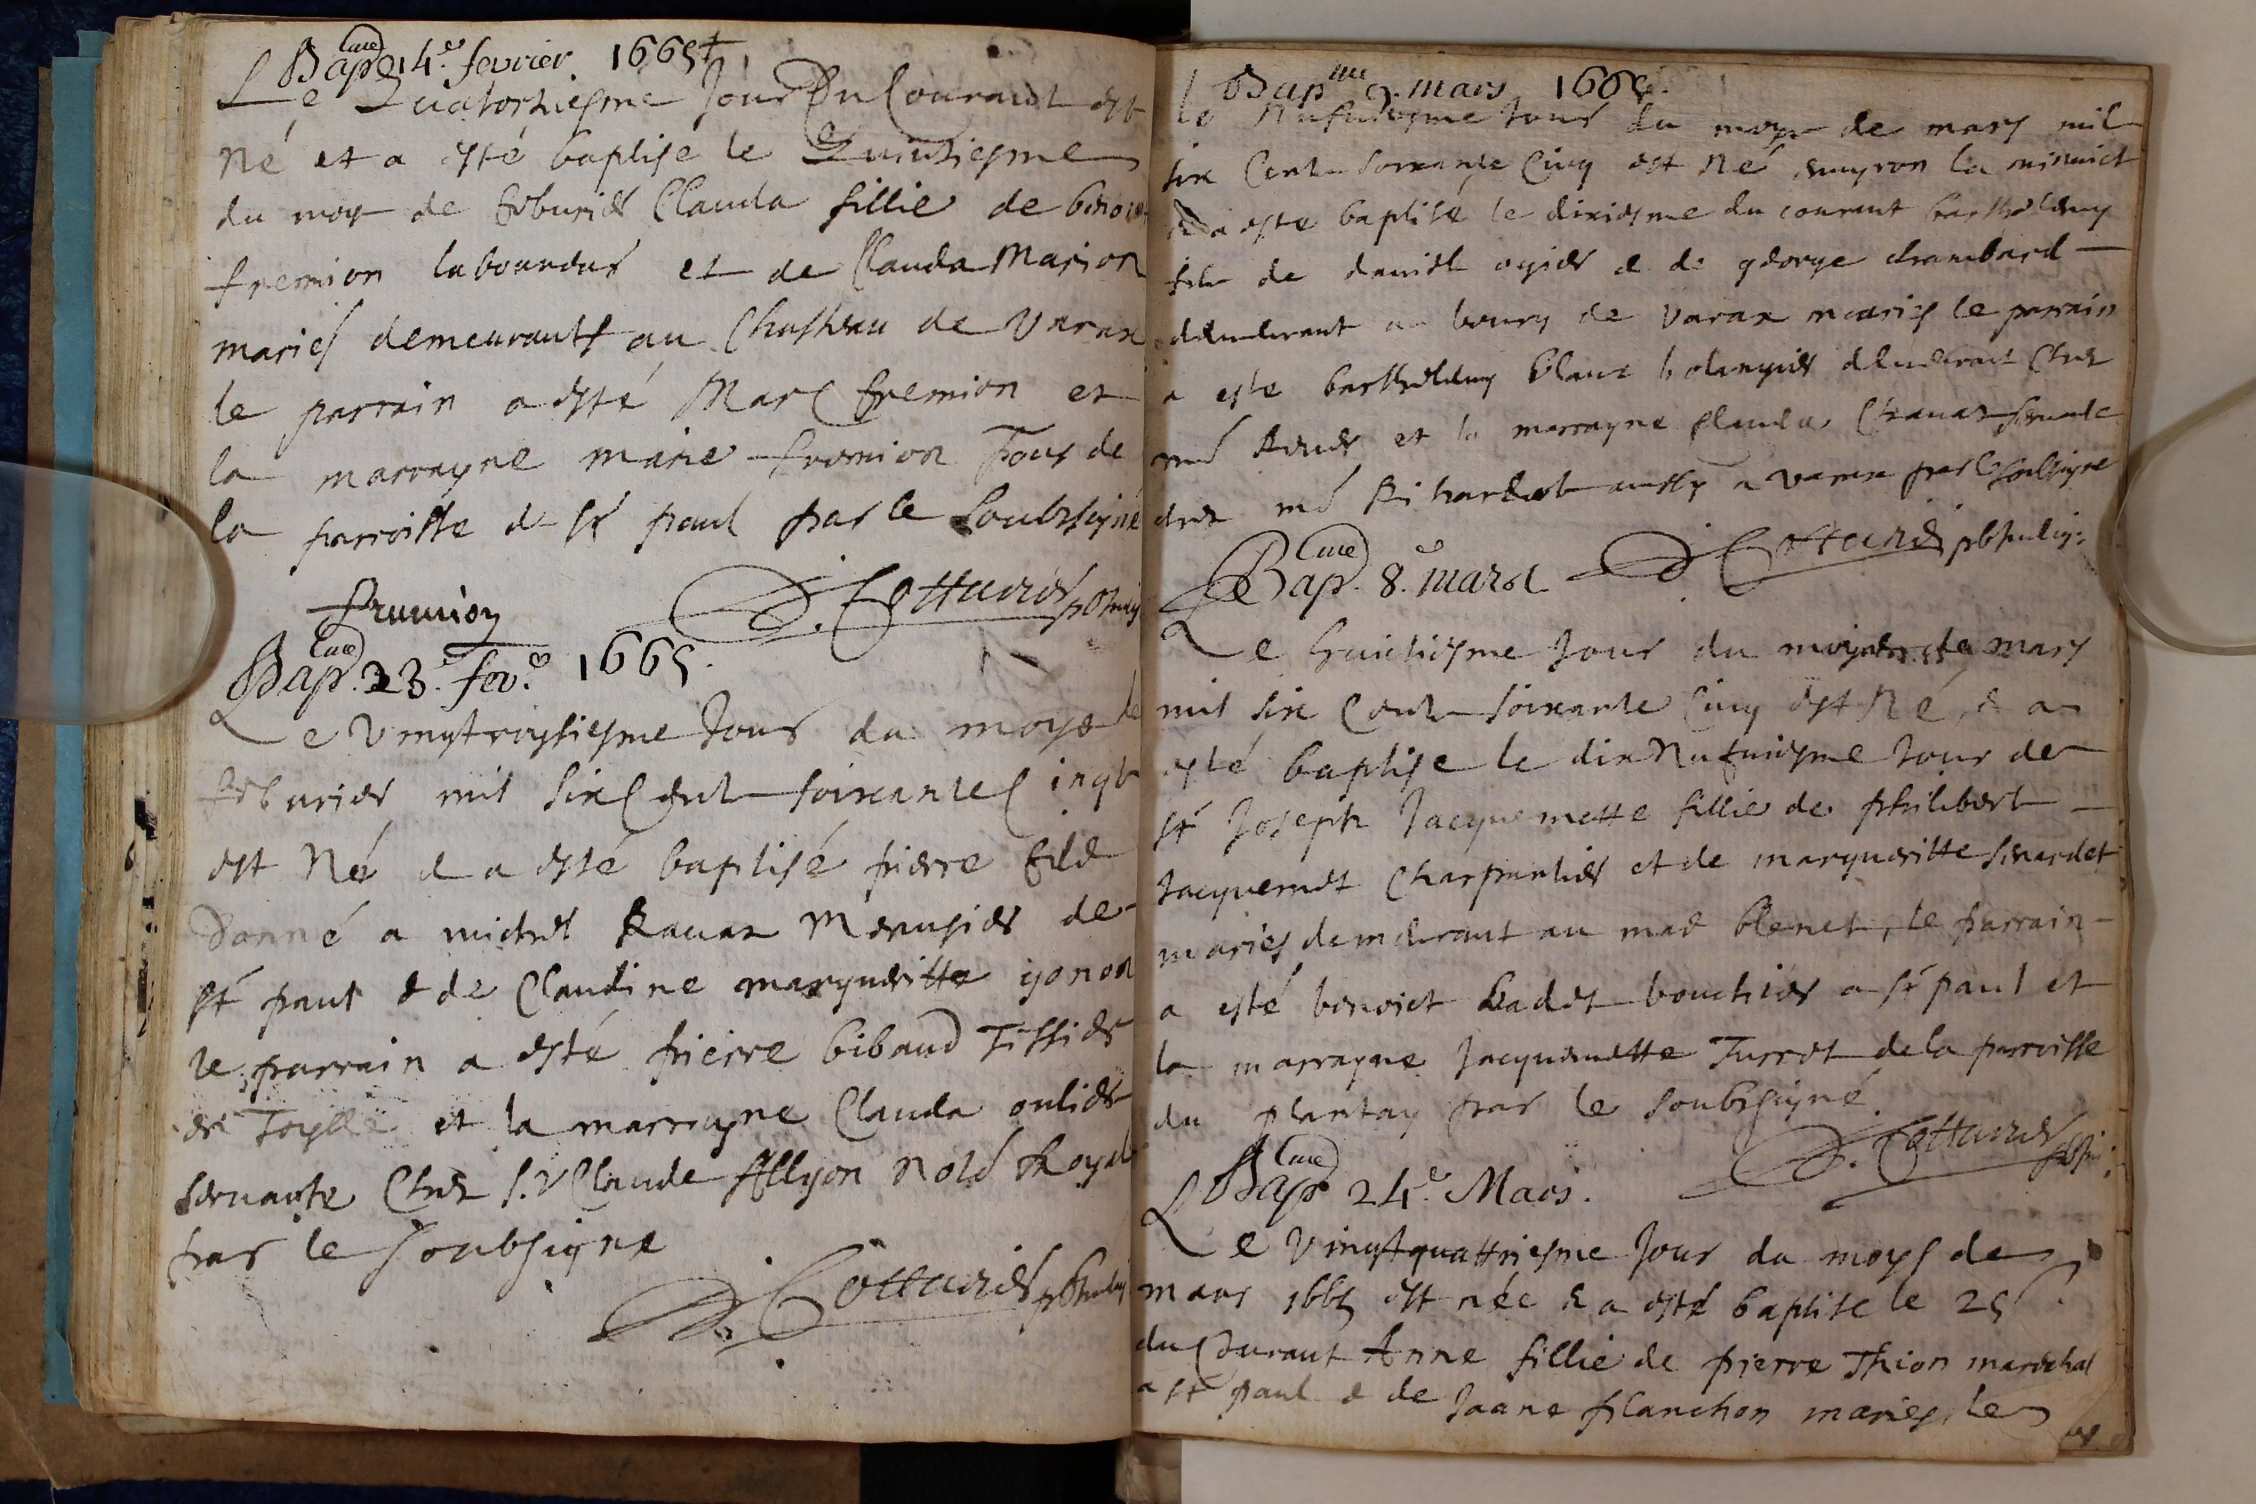 Bap 14.e fevrier 1665
Le Quatorziesme Jour Du Courant est
Né et a esté baptise le Quinziesme
du moys de feburier Clauda fillie de benoist
fremion laboureur et de Clauda Marion
mariés demeurants au Chasteau de Varax
le parrain a esté Marc fremion et
la marrayne marie fremion Tous de
la parroisse de St paul par le Soubzsigné
fremion
D. Cottarier
Bap. 23. fev.e 1665.
Le Vingtroysiesme Jour du moys de
feburier mil six Cent soixante Cinq
est Né et a esté baptisé pierre filz
Donné a michel Ravaz Menusier de
St paul et de Claudine margueritte yonon
le parrain a esté pierre bibaud Tissier
de Toylle et la marrayne Clauda oulier
servante Chez S.r Claude Allyon Notre Royal
par le soubsigne
D. Cottarier
Bap.me 9. mars 1665.
le Nufviesme Jour du moys de mars mil
six Cent soixante Cinq est Né envyron la minuict
et a esté baptisé le dixiesme du courant barthelemy
filz de daniel ogier et de george chambard
demeurant au bourg de varax mariés le parrain
a esté barthelemy blanc bolangier demeurant Chez
me et la marrayne Clauda servante
chez me Richardet aussy a varax par le soubsigne
D. Cottarier
Bap. 8.e mars
Le huictiesme Jour du moys de mars
mil six Cent soixante Cinq est Né, et a
esté baptise le dix Nufviesme Jour de
St Joseph Jacquemette fillie de philibert
Jacquemet Charpentier et de margueritte
mariés demeurant au mas blenet, le parrain
a esté benoict Cadet bouchier a St paul et
la marrayne Jacquemette Turret de la parroisse
du plantay par le soubsigné.
D. Cottarier
Bap 24.e Mars.
Le Vingtquattriesme Jour du moys de
mars 1665 est née et a esté baptisé le 25
du Courant Anne fillie de pierre Thion mareschal
a St paul et de Jeane planchon mariés, le